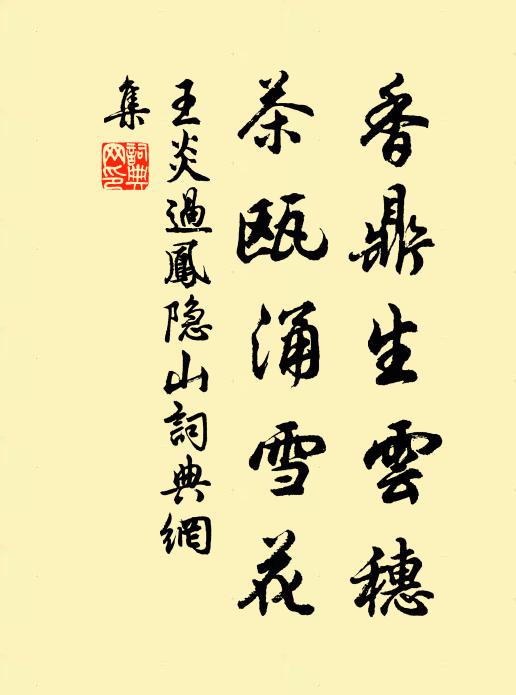 香鼎生雲穗
茶瓯涌雪花
王炎過鳳隐山詞典網
集
詞典网印